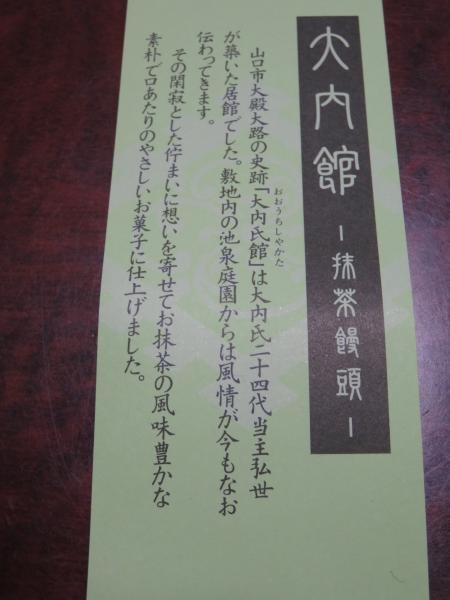 大内館
－抹茶饅頭－
山口市大殿大路の史跡「大内氏館」は大内氏二十四代当主弘世
おおうちしやかた
が築いた居館でした。敷地内の池泉庭園からは風情が今もなお
伝わってきます。
その閑寂とした佇まいに想いを寄せてお抹茶の風味豊かな
素朴で口あたりのやさしいお菓子に仕上げました。